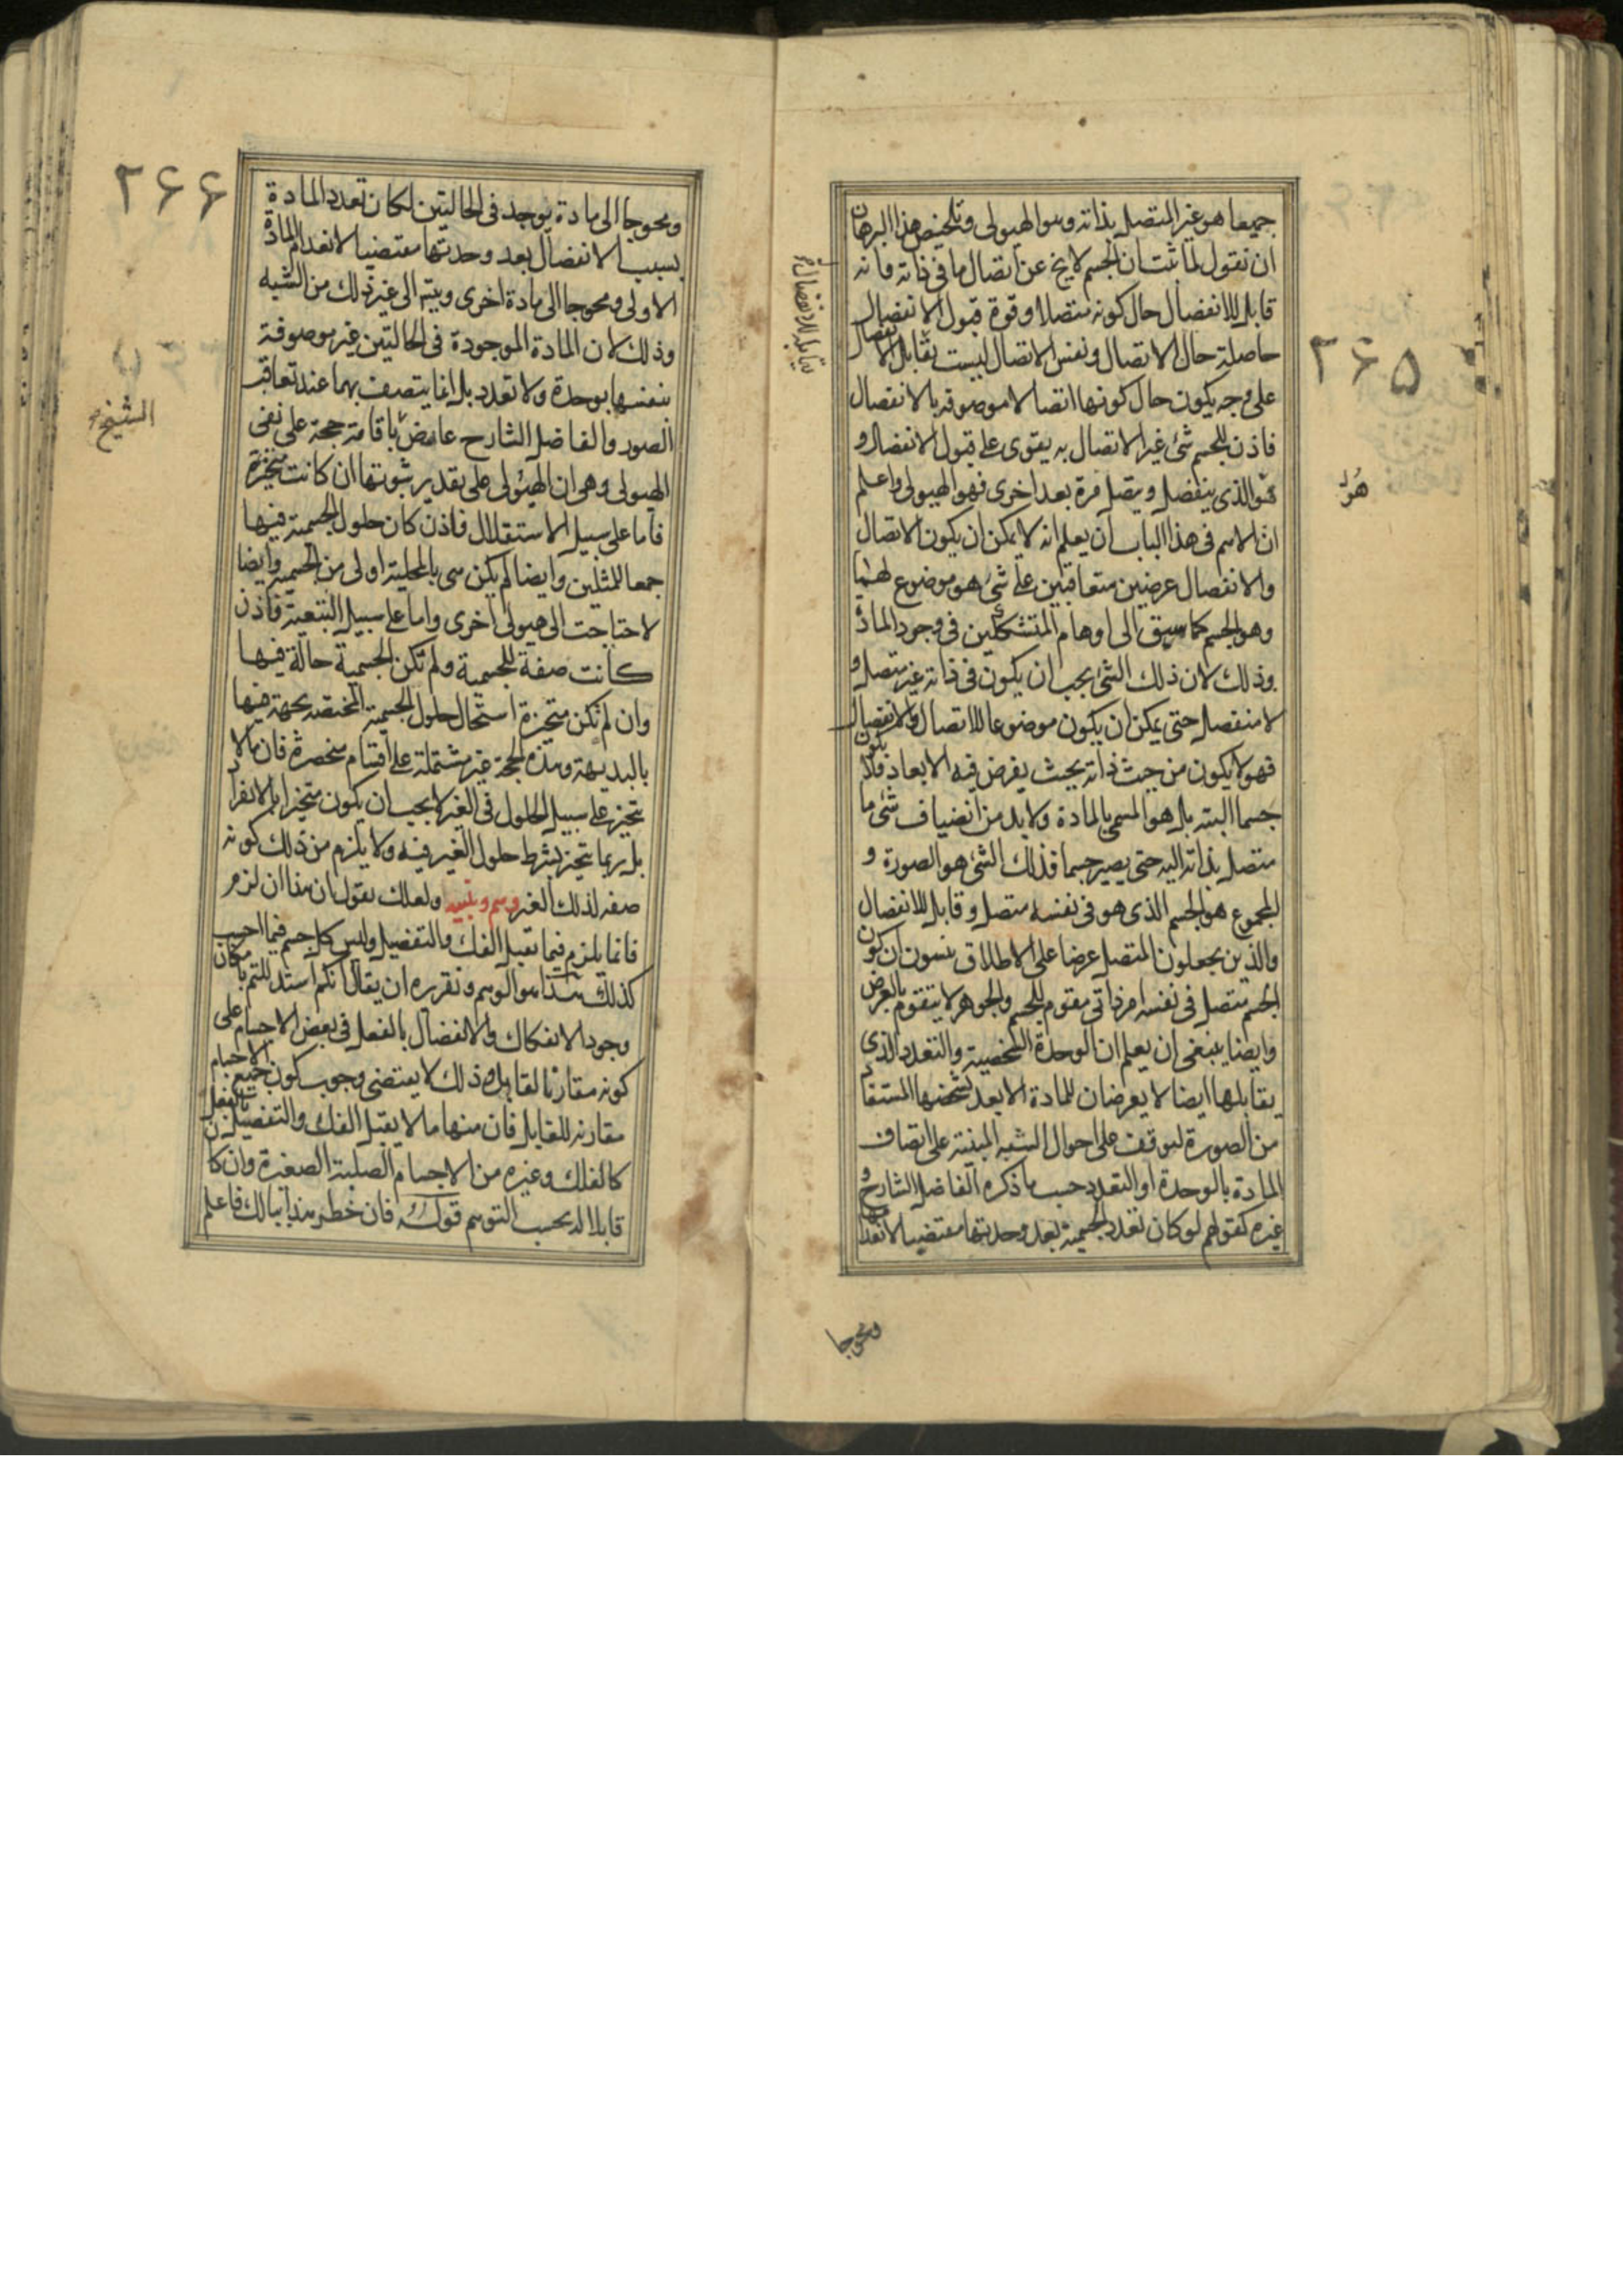 جميعا هو غير المتصل بذاته وهو الهيولى وتلخيص هذا البرهان
ان نقول لما ثبت ان الجسم لا يخ عن اتصال ما فى ذاته فانه
قابل للانفصال حال كونه متصلا وقوة قبول الانفصال
حاصلة حال الاتصال ونفس الاتصال ليست بقابل الانفصال
على وجه يكون حال كونها اتصالا موصوفه بالانفصال
فاذن للجسم شئ غير الاتصال به يقوى على قبول الانفصال و
هو الذى ينفصل ويتصل مرة بعد اخرى فهو الهيولى واعلم
ان الاسم فى هذا الباب ان يعلم انه لا يمكن ان يكون الاتصال
والانفصال عرضين متعاقبين على شئ هو موضوع لهما
وهو الجسم كما سبق الى اوهام المتشككين فى وجود المادة
وذلك لان ذلك الشئ يجب ان يكون فى ذاته غير متصل و
لا منفصل حتى يمكن ان يكون موضوعا للاتصال والانفصال
فهو لا يكون من حيث ذاته بحيث يفرض فيه الابعاد فلا يكون
جسما البته بل هو المسمى بالمادة ولا بد من انضياف شئ ما
متصل بذاته اليه حتى يصير جسما فذلك الشئ هو الصورة و
المجموع هو الجسم الذى هو فى نفسه متصل وقابل للانفصال
والذين يجعلون المتصل عرضا على الاطلاق ينسون ان كون
الجسم متصل فى نفسه امر ذاتى مقوم للجسم والجوهر لا يتقوم بالعرض
وايضا ينبغى ان يعلم ان الوحدة الشخصية والتعدد الذى
يقابلها ايضا لا يعرضان للمادة الا بعد تشخصها المستفاد
من الصورة ليوقف على احوال الشبه المبنية على اتصاف
المادة بالوحدة او التعدد حسب ما ذكره الفاضل الشارح و
غيره كقولهم لو كان تعدد الجسمية بعد وحدتها مقتضيا لانعدامها
ومحوجا
قابل للانفصال
٢۶۵
هو
ومحوجا الى مادة يوجد فى الحالتين لكان تعدد المادة
بسبب الانفصال بعد وحدتها مقتضيا لانعدام المادة
الاولى ومحوجا الى مادة اخرى ويتم الى غير ذلك من الشبه
وذلك لان المادة الموجودة فى الحالتين غير موصوفة
بنفسها بوحدة ولا تعدد بل انما يتصف بهما عند تعاقب
الصور والفاضل الشارح عارض باقامة حجة على نفى
الهيولى وهى ان الهيولى على تقدير ثبوتها ان كانت متحيزة
فاما على سبيل الاستقلال فاذن كان حلول الجسمية فيها
جمعا للمثلين وايضا لم يكن هى بالمحلية اولى من الجسمية وايضا
لاحتاجت الى هيولى اخرى واما على سبيل التبعية فاذن
كانت صفة للجسمية ولم تكن الجسمية حالة فيها
وان لم تكن متحيزة استحال حلول الجسمية المختصة بجهة فيها
بالبديهة وهذه الحجة غير مشتملة على اقسام منحصرة فان ما لا
يتحيز على سبيل الحلول فى الغير لا يجب ان يكون متحيزا بالانفراد
بل ربما يتحيز بشرط حلول الغير فيه ولا يلزم من ذلك كونه
صفه لذلك الغير وهم وتنبيه ولعلك تقول ان هذا ان لزم
فانما يلزم فيما تقبل الفك والتفصيل وليس كل جسم فيما احسب
كذلك هذا هو الوهم وتقريره ان يقال انكم استدللتم بامكان
وجود الانفكاك والانفصال بالفعل فى بعض الاجسام على
كونه مقارنا لقابل وذلك لا يقتضى وجوب كون جميع الاجسام
مقارنه للقابل فان منها ما لا يقبل الفك والتفصيل بالفعل
كالفلك وغيره من الاجسام الصلبة الصغيرة وان كان
قابلا له بحسب التوهم قوله فان خطر هذا ببالك فاعلم
٢۶۶
الشيخ